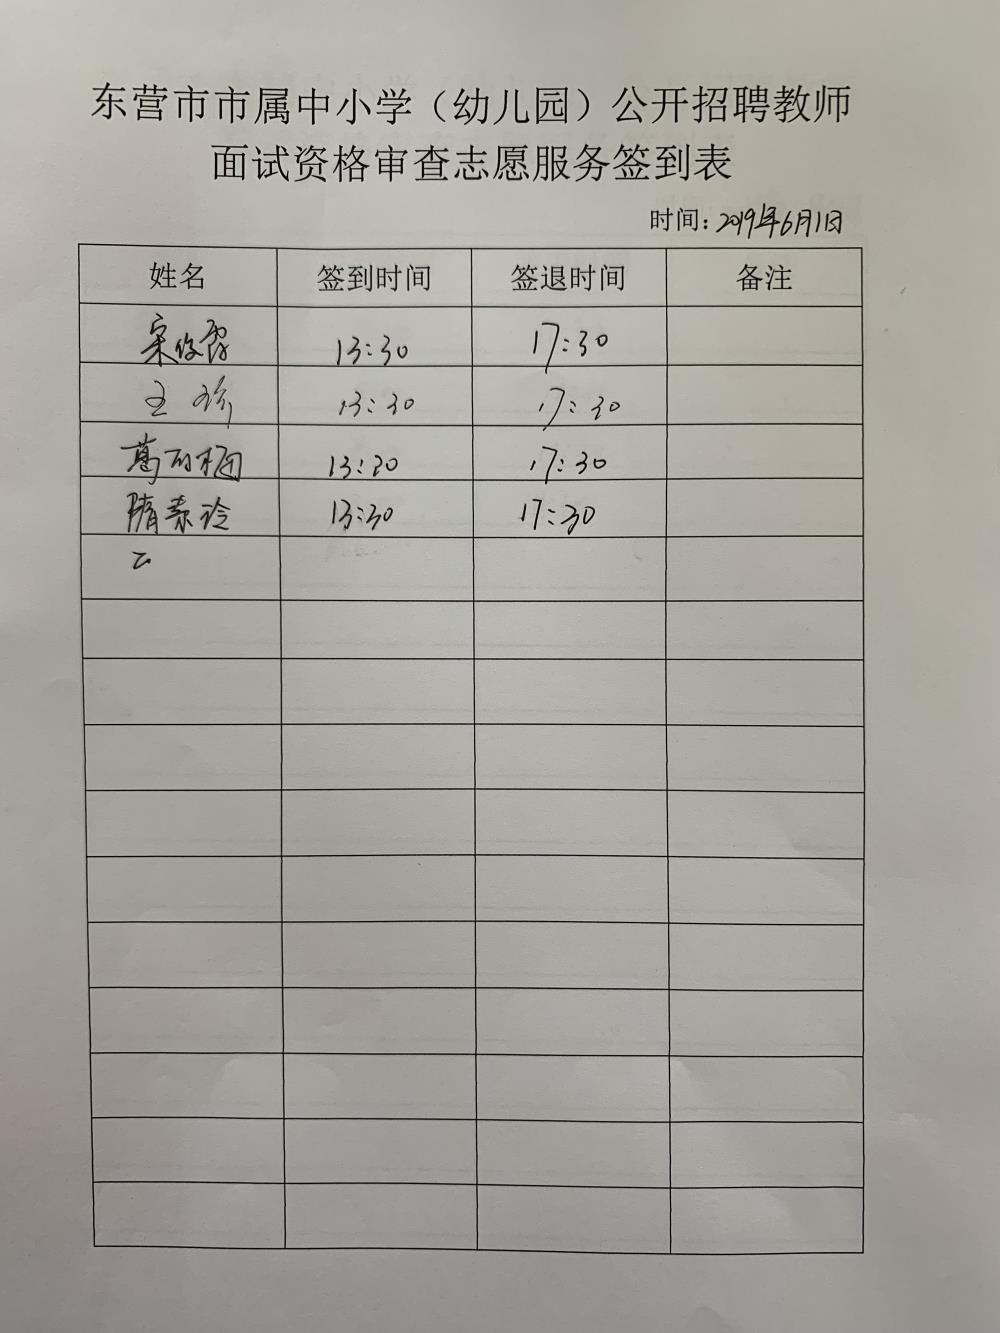 东营市市属中小学（幼儿园）公开招聘教师
面试资格审查志愿服务签到表
时间：2019年6月1日
姓名 签到时间 签退时间 备注
宋俊霞 13:30 17:30
王珍 13:30 17:30
葛丽梅 13:30 17:30
隋素玲 13:30 17:30